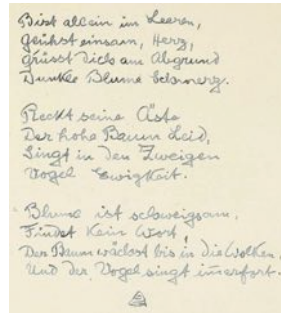 Bist allein im Leeren,
Glühst einsam, Herz,
Grüsst dich am Abgrund
Dunkle Blume Schmerz.
Reckt seine Äste
Der hohe Baum Leid,
Singt in den Zweigen
Vogel Ewigkeit.
Blume ist schweigsam,
Findet kein Wort!
Der Baum wächst bis in die Wolken,
Und der Vogel singt immerfort.